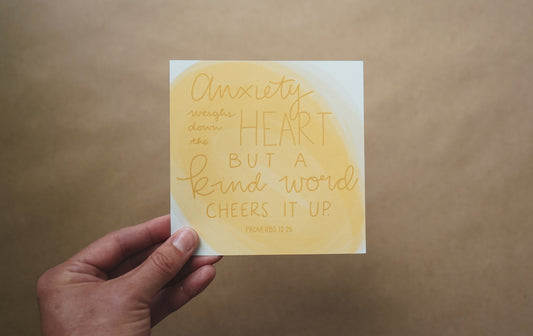 anxiety
weighs
down
the
HEART
BUT A
kind word
CHEERS IT UP.
PROVERBS 12:25